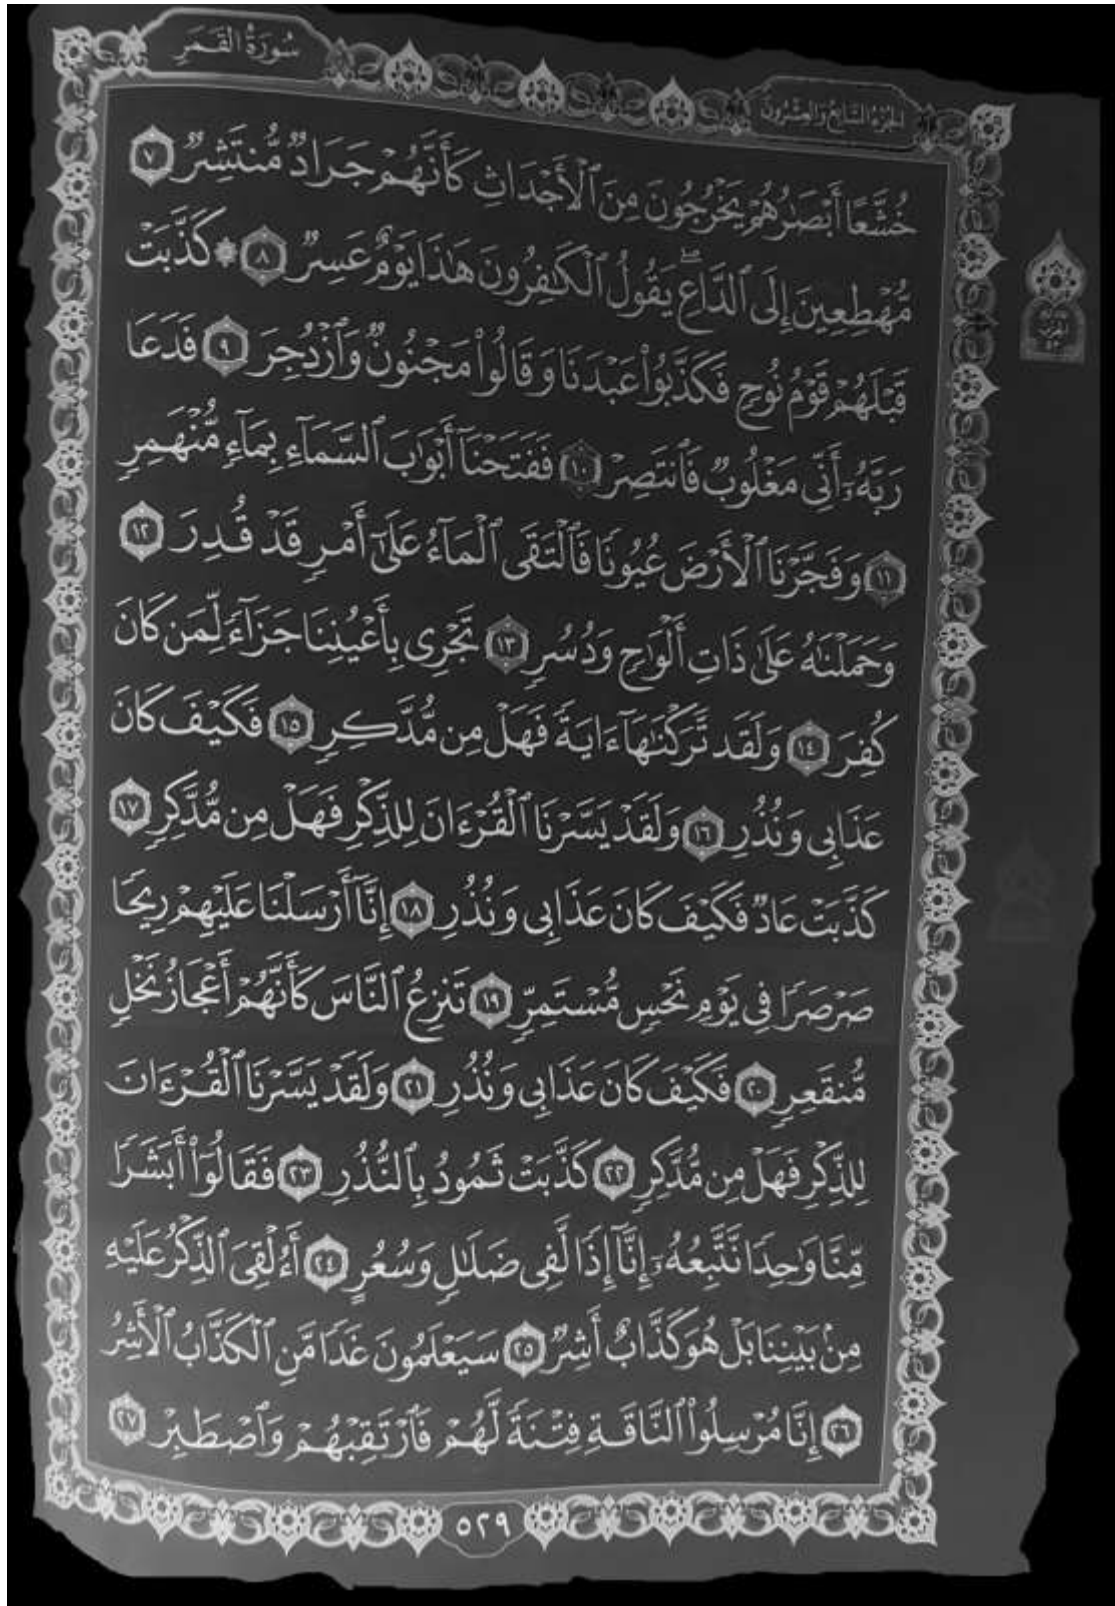 سُورَةُ القَمَرِ
الجُزْءُ السَّابِعُ وَالعِشْرُونَ
خُشَّعًا أَبْصَٰرُهُمْ يَخْرُجُونَ مِنَ ٱلْأَجْدَاثِ كَأَنَّهُمْ جَرَادٌ مُّنتَشِرٌ ٧
مُّهْطِعِينَ إِلَى ٱلدَّاعِ ۖ يَقُولُ ٱلْكَٰفِرُونَ هَٰذَا يَوْمٌ عَسِرٌ ٨ ۞ كَذَّبَتْ
قَبْلَهُمْ قَوْمُ نُوحٍ فَكَذَّبُوا۟ عَبْدَنَا وَقَالُوا۟ مَجْنُونٌ وَٱزْدُجِرَ ٩ فَدَعَا
رَبَّهُۥٓ أَنِّى مَغْلُوبٌ فَٱنتَصِرْ ١٠ فَفَتَحْنَآ أَبْوَٰبَ ٱلسَّمَآءِ بِمَآءٍ مُّنْهَمِرٍ
١١ وَفَجَّرْنَا ٱلْأَرْضَ عُيُونًا فَٱلْتَقَى ٱلْمَآءُ عَلَىٰٓ أَمْرٍ قَدْ قُدِرَ ١٢
وَحَمَلْنَٰهُ عَلَىٰ ذَاتِ أَلْوَٰحٍ وَدُسُرٍ ١٣ تَجْرِى بِأَعْيُنِنَا جَزَآءً لِّمَن كَانَ
كُفِرَ ١٤ وَلَقَد تَّرَكْنَٰهَآ ءَايَةً فَهَلْ مِن مُّدَّكِرٍ ١٥ فَكَيْفَ كَانَ
عَذَابِى وَنُذُرِ ١٦ وَلَقَدْ يَسَّرْنَا ٱلْقُرْءَانَ لِلذِّكْرِ فَهَلْ مِن مُّدَّكِرٍ ١٧
كَذَّبَتْ عَادٌ فَكَيْفَ كَانَ عَذَابِى وَنُذُرِ ١٨ إِنَّآ أَرْسَلْنَا عَلَيْهِمْ رِيحًا
صَرْصَرًا فِى يَوْمِ نَحْسٍ مُّسْتَمِرٍّ ١٩ تَنزِعُ ٱلنَّاسَ كَأَنَّهُمْ أَعْجَازُ نَخْلٍ
مُّنقَعِرٍ ٢٠ فَكَيْفَ كَانَ عَذَابِى وَنُذُرِ ٢١ وَلَقَدْ يَسَّرْنَا ٱلْقُرْءَانَ
لِلذِّكْرِ فَهَلْ مِن مُّدَّكِرٍ ٢٢ كَذَّبَتْ ثَمُودُ بِٱلنُّذُرِ ٢٣ فَقَالُوٓا۟ أَبَشَرًا
مِّنَّا وَٰحِدًا نَّتَّبِعُهُۥٓ إِنَّآ إِذًا لَّفِى ضَلَٰلٍ وَسُعُرٍ ٢٤ أَءُلْقِىَ ٱلذِّكْرُ عَلَيْهِ
مِنۢ بَيْنِنَا بَلْ هُوَ كَذَّابٌ أَشِرٌ ٢٥ سَيَعْلَمُونَ غَدًا مَّنِ ٱلْكَذَّابُ ٱلْأَشِرُ
٢٦ إِنَّا مُرْسِلُوا۟ ٱلنَّاقَةِ فِتْنَةً لَّهُمْ فَٱرْتَقِبْهُمْ وَٱصْطَبِرْ ٢٧
٥٢٩